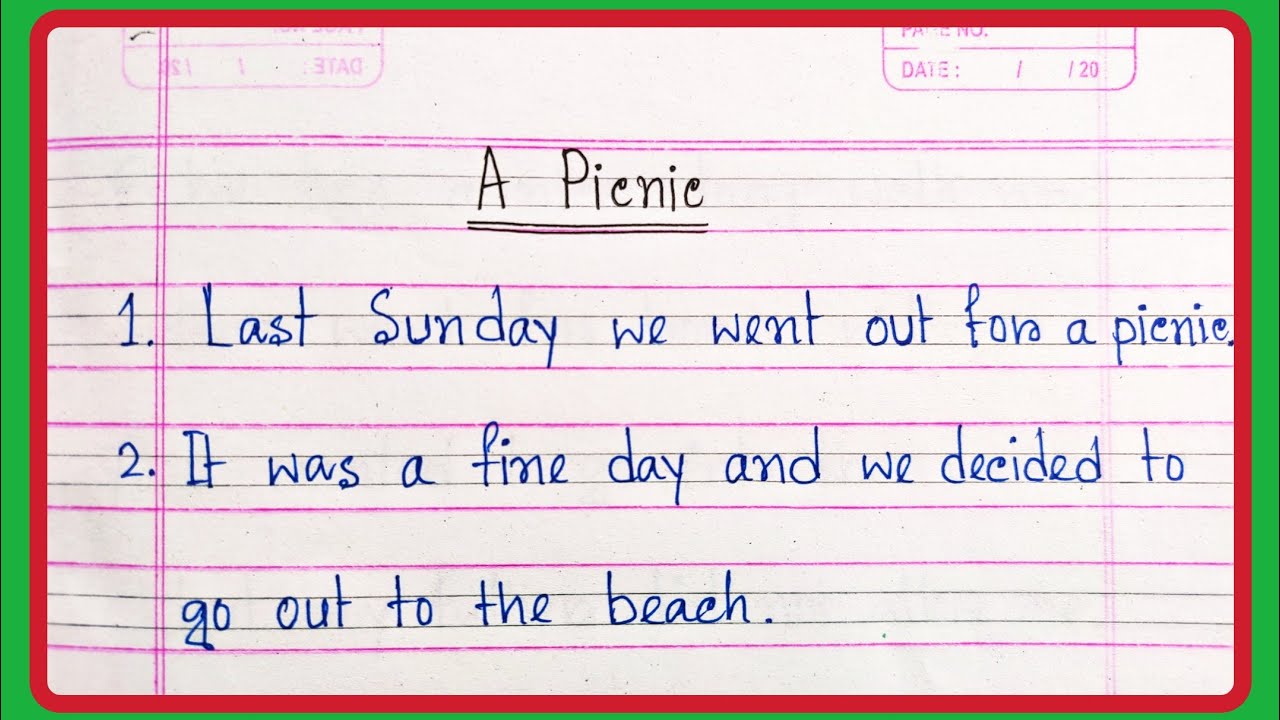 PAGE NO.
DATE : / / 20
A Picnic
1. Last Sunday we went out for a picnic.
2. It was a fine day and we decided to
go out to the beach.